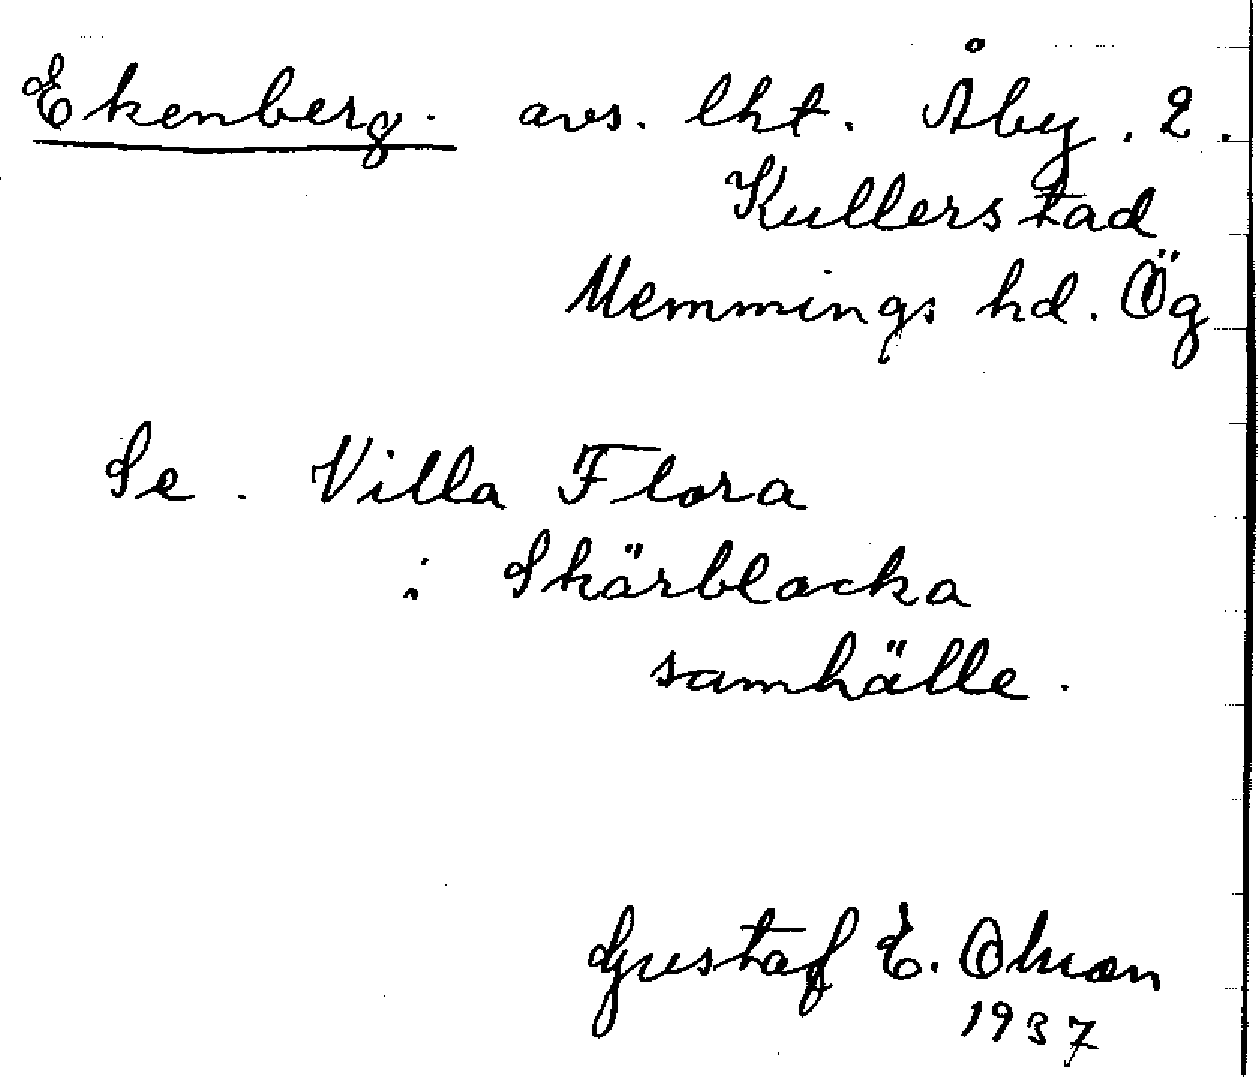 Ekenberg. avs. lht. Åby. 2.
Kullerstad
Memmings hd. Ög
Se. Villa Flora
i Skärblacka
samhälle.
Gustaf E. Olsson
1937